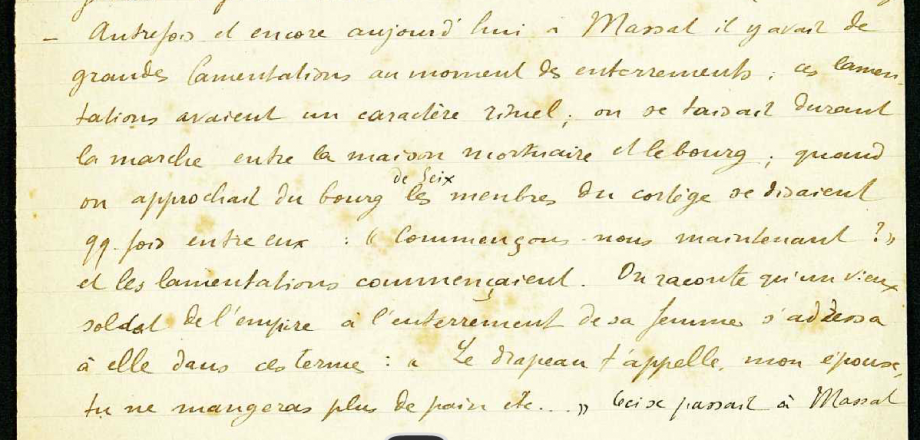 – Autrefois et encore aujourd'hui à Massat il y avait de
grandes lamentations au moment des enterrements ; ces lamen-
tations avaient un caractère rituel ; on se taisait durant
la marche entre la maison mortuaire et le bourg ; quand
on approchait du bourg de Seix les menbres du cortège se disaient
qq. fois entre eux : « Commençons-nous maintenant ? »
et les lamentations commençaient. On raconte qu'un vieux
soldat de l'empire à l'enterrement de sa femme s'adressa
à elle dans ces terme : « Le drapeau t'appelle, mon épouse,
tu ne mangeras plus de pain etc... » Ceci se passait à Massat